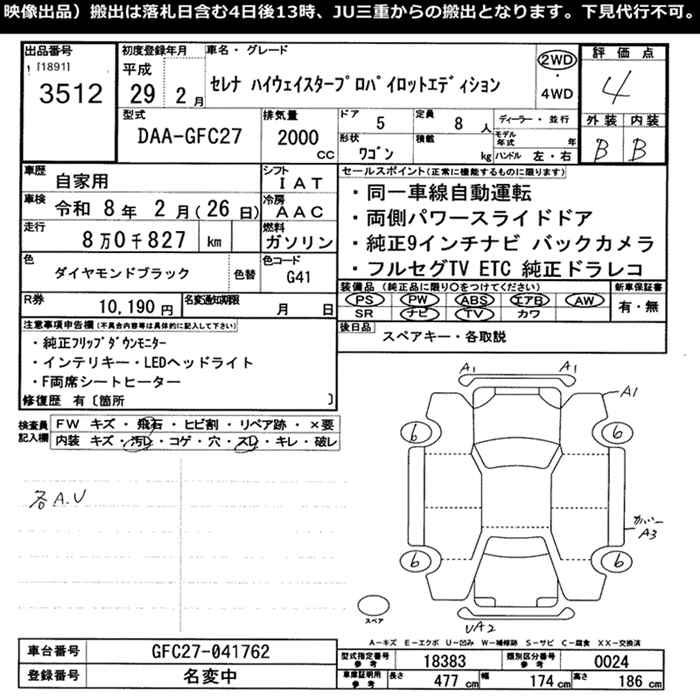 映像出品）搬出は落札日含む4日後13時、JU三重からの搬出となります。下見代行不可。
出品番号
[1891]
3512
初度登録年月
平成
29 2月
車名・グレード
セレナ ハイウェイスタープロパイロットエディション
2WD
・
4WD
評価点
4
外装 内装
B B
型式
DAA-GFC27
排気量
2000
CC
ドア
5
定員
8 人
形状
ワゴン
積載
kg
ディーラー・並行
モデル年式 年
ハンドル 左・右
車歴
自家用
シフト
IAT
車検
令和 8年 2月(26日)
冷房
AAC
走行
8万0千827 km
燃料
ガソリン
色
ダイヤモンドブラック
色替
色コード
G41
R券
10,190円
名変通知期限
月 日
セールスポイント(正常に機能するものに限ります)
・同一車線自動運転
・両側パワースライドドア
・純正9インチナビ バックカメラ
・フルセグTV ETC 純正ドラレコ
装備品 (純正品に限り○をつけてください)
PS PW ABS エアB AW
SR ナビ TV カワ
新車保証書
有・無
後日品
スペアキー・各取説
注意事項申告欄(不具合内容等は具体的に記入して下さい)
・純正フリップダウンモニター
・インテリキー・LEDヘッドライト
・F両席シートヒーター
修復歴 有〔箇所 〕
検査員記入欄
FW キズ・飛石・ヒビ割・リペア跡・×要
内装 キズ・汚レ・コゲ・穴・スレ・キレ・破レ
各A.U
A1 A1
A1
6 6
カバー
A3
6 6
スペア
UA2
A-キズ E-エクボ U-凹み W-補修跡 S-サビ C-腐食 XX-交換済
車台番号
GFC27-041762
登録番号
名変中
型式指定番号
参考
18383
類別区分番号
参考
0024
車庫証明用
参考
長さ 477 cm 幅 174 cm 高さ 186 cm